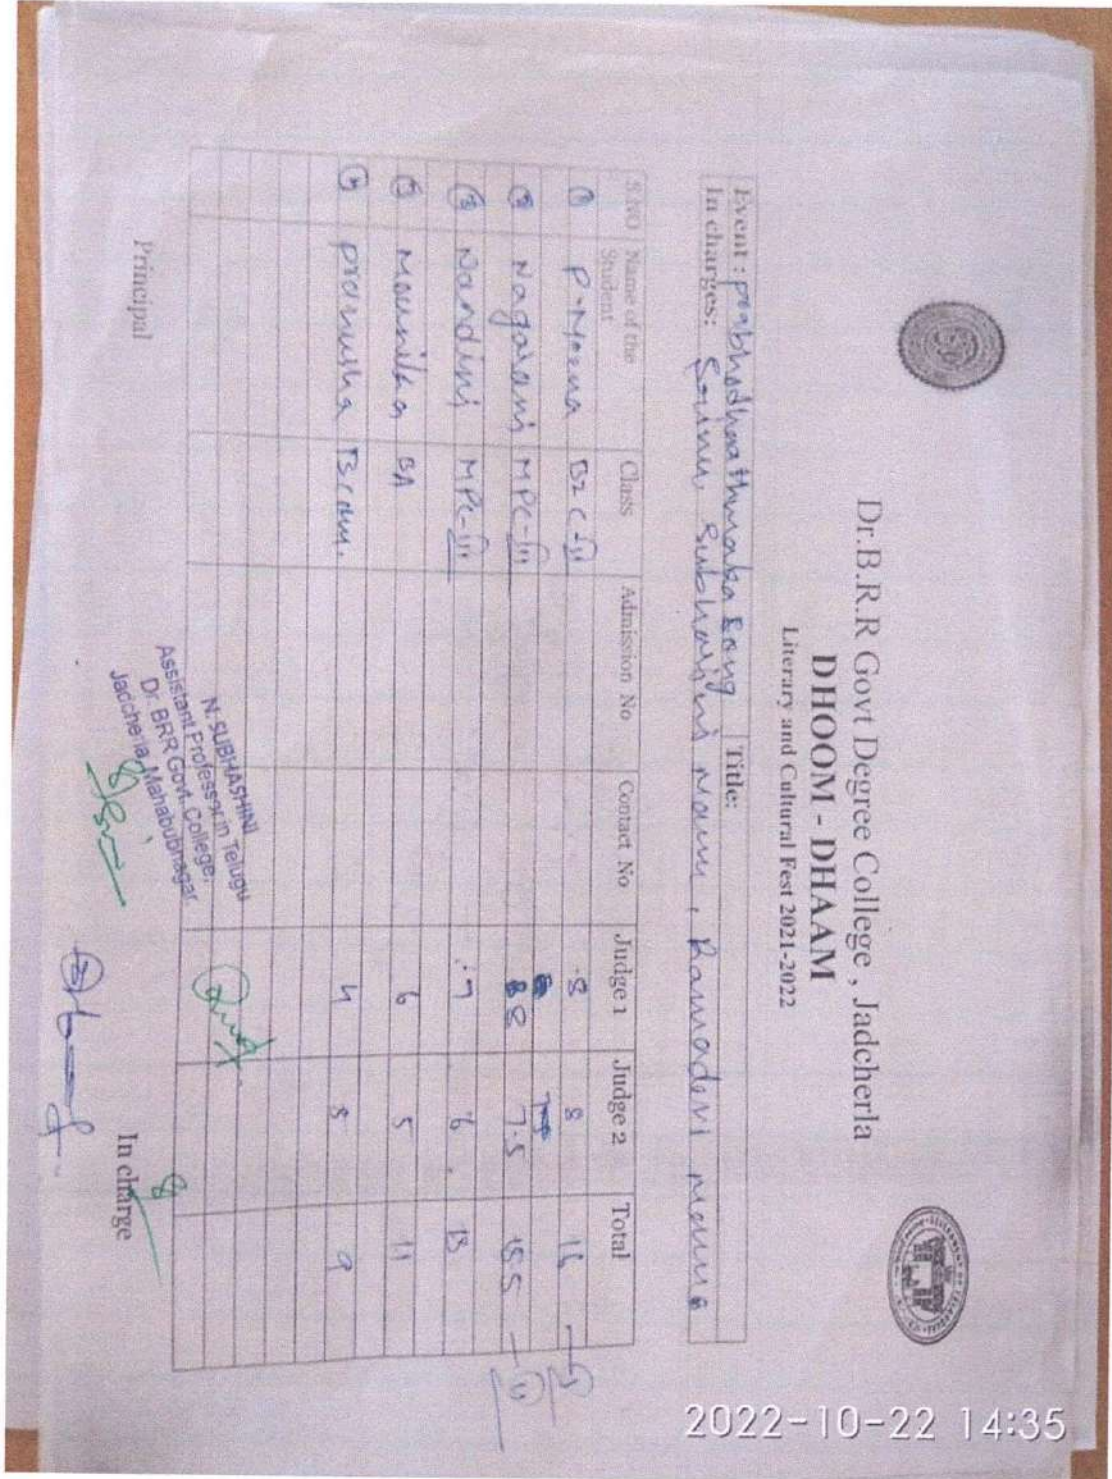 Dr.B.R.R Govt Degree College , Jadcherla
DHOOM - DHAAM
Literary and Cultural Fest 2021-2022
Event : prabhodhaathmaka Song Title:
In charges: Srinu, Subhashini mam, Ramadevi
S.NO Name of the Student Class Admission No Contact No Judge 1 Judge 2 Total
① BZC-III 8 8 16 - I
② Nagarani MPC-III 8 7.5 15.5 - II
③ Nandini MPC-III 7 6 13
Mounika BA 6 5 11
pranusha Bcom. 4 5 9
N. SUBHASHINI
Assistant Professor in Telugu
Dr. BRR Govt. College,
Jadcherla, Mahabubnagar
Principal
In charge
2022-10-22 14:35